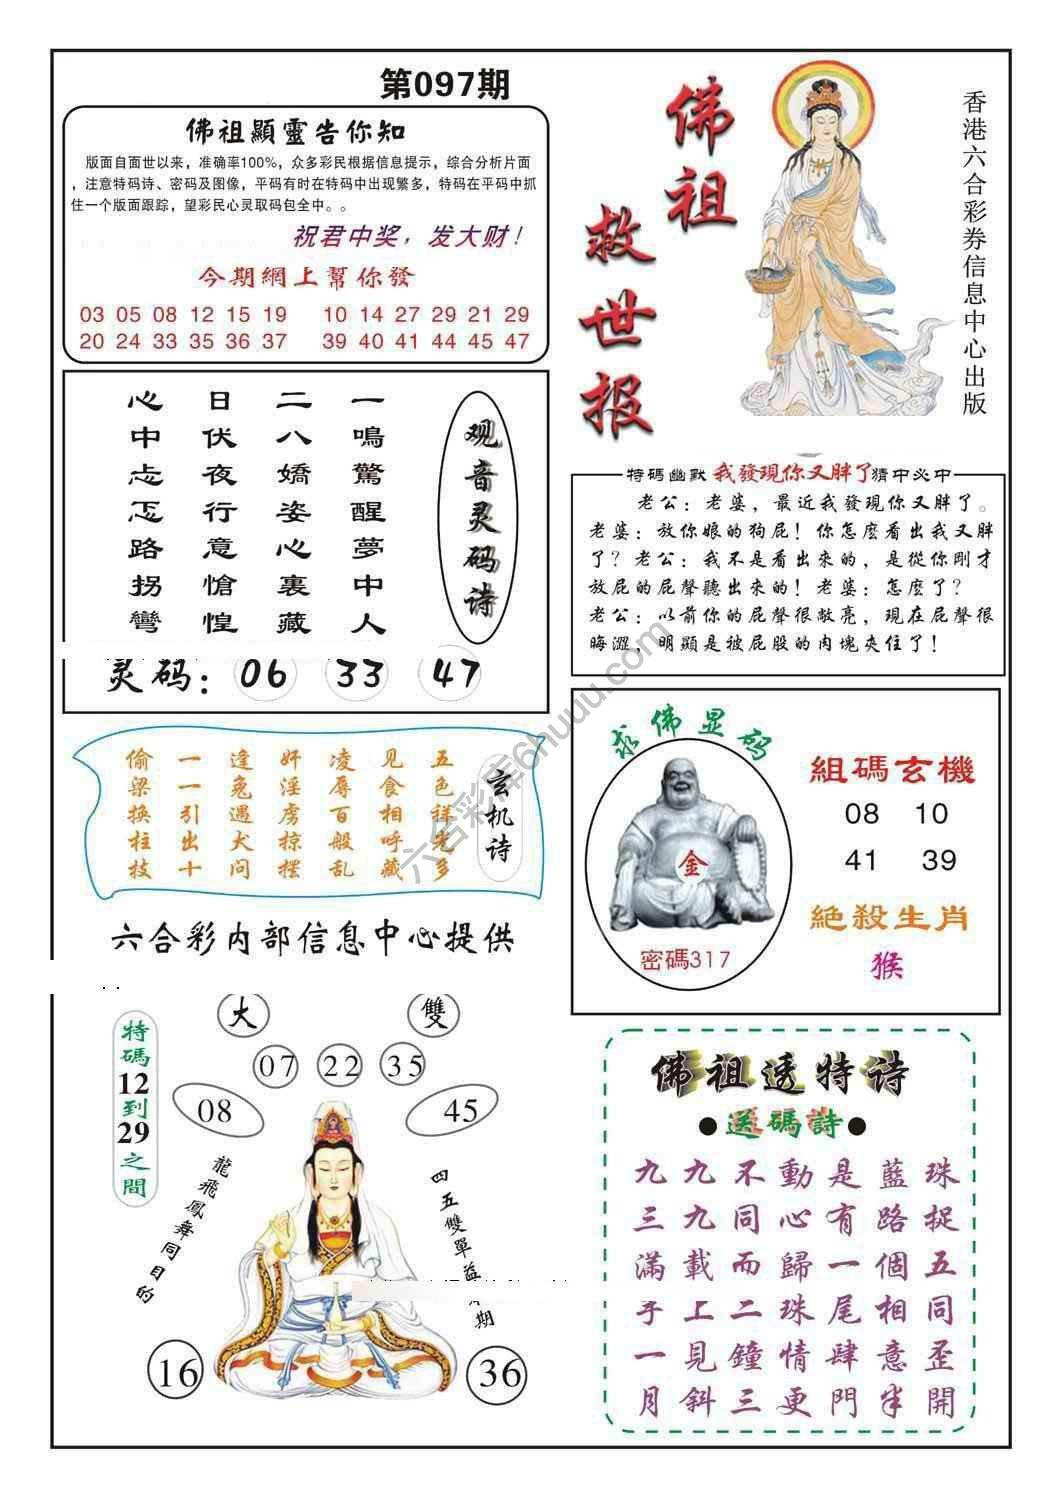 第097期
佛祖顯靈告你知
版面自面世以来，准确率100%，众多彩民根据信息提示，综合分析片面
，注意特码诗、密码及图像，平码有时在特码中出现繁多，特码在平码中抓
住一个版面跟踪，望彩民心灵取码包全中。。
祝君中奖，发大财！
今期網上幫你發
03 05 08 12 15 19 10 14 27 29 21 29
20 24 33 35 36 37 39 40 41 44 45 47
佛祖
救世报
香港六合彩券信息中心出版
观音灵码诗
一鳴驚醒夢中人
二八嬌姿心裏藏
日伏夜行意愴惶
心中忐忑路拐彎
灵码：06 33 47
特碼幽默 我發現你又胖了 猜中必中
老公：老婆，最近我發現你又胖了。
老婆：放你娘的狗屁！你怎麽看出我又胖
了？老公：我不是看出來的，是從你剛才
放屁的屁聲聽出來的！老婆：怎麽了？
老公：以前你的屁聲很敞亮，現在屁聲很
晦澀，明顯是被屁股的肉塊夾住了！
玄机诗
五色祥先多
见食相呼藏
凌辱百般乱
奸淫虏掠摆
逢兔遇犬问
一一引出十
偷梁换柱技
六合彩内部信息中心提供
求佛显码
金
密碼317
組碼玄機
08 10
41 39
絕殺生肖
猴
大 雙
07 22 35
08 45
特碼12到29之間
龍飛鳳舞同目的
四五雙單益
期
16 36
佛祖透特诗
●送碼詩●
九九不動是藍珠
三九同心有路捉
滿載而歸一個五
手上二珠尾相同
一見鐘情肆意歪
月斜三更門半開
六合彩库6huuu.com